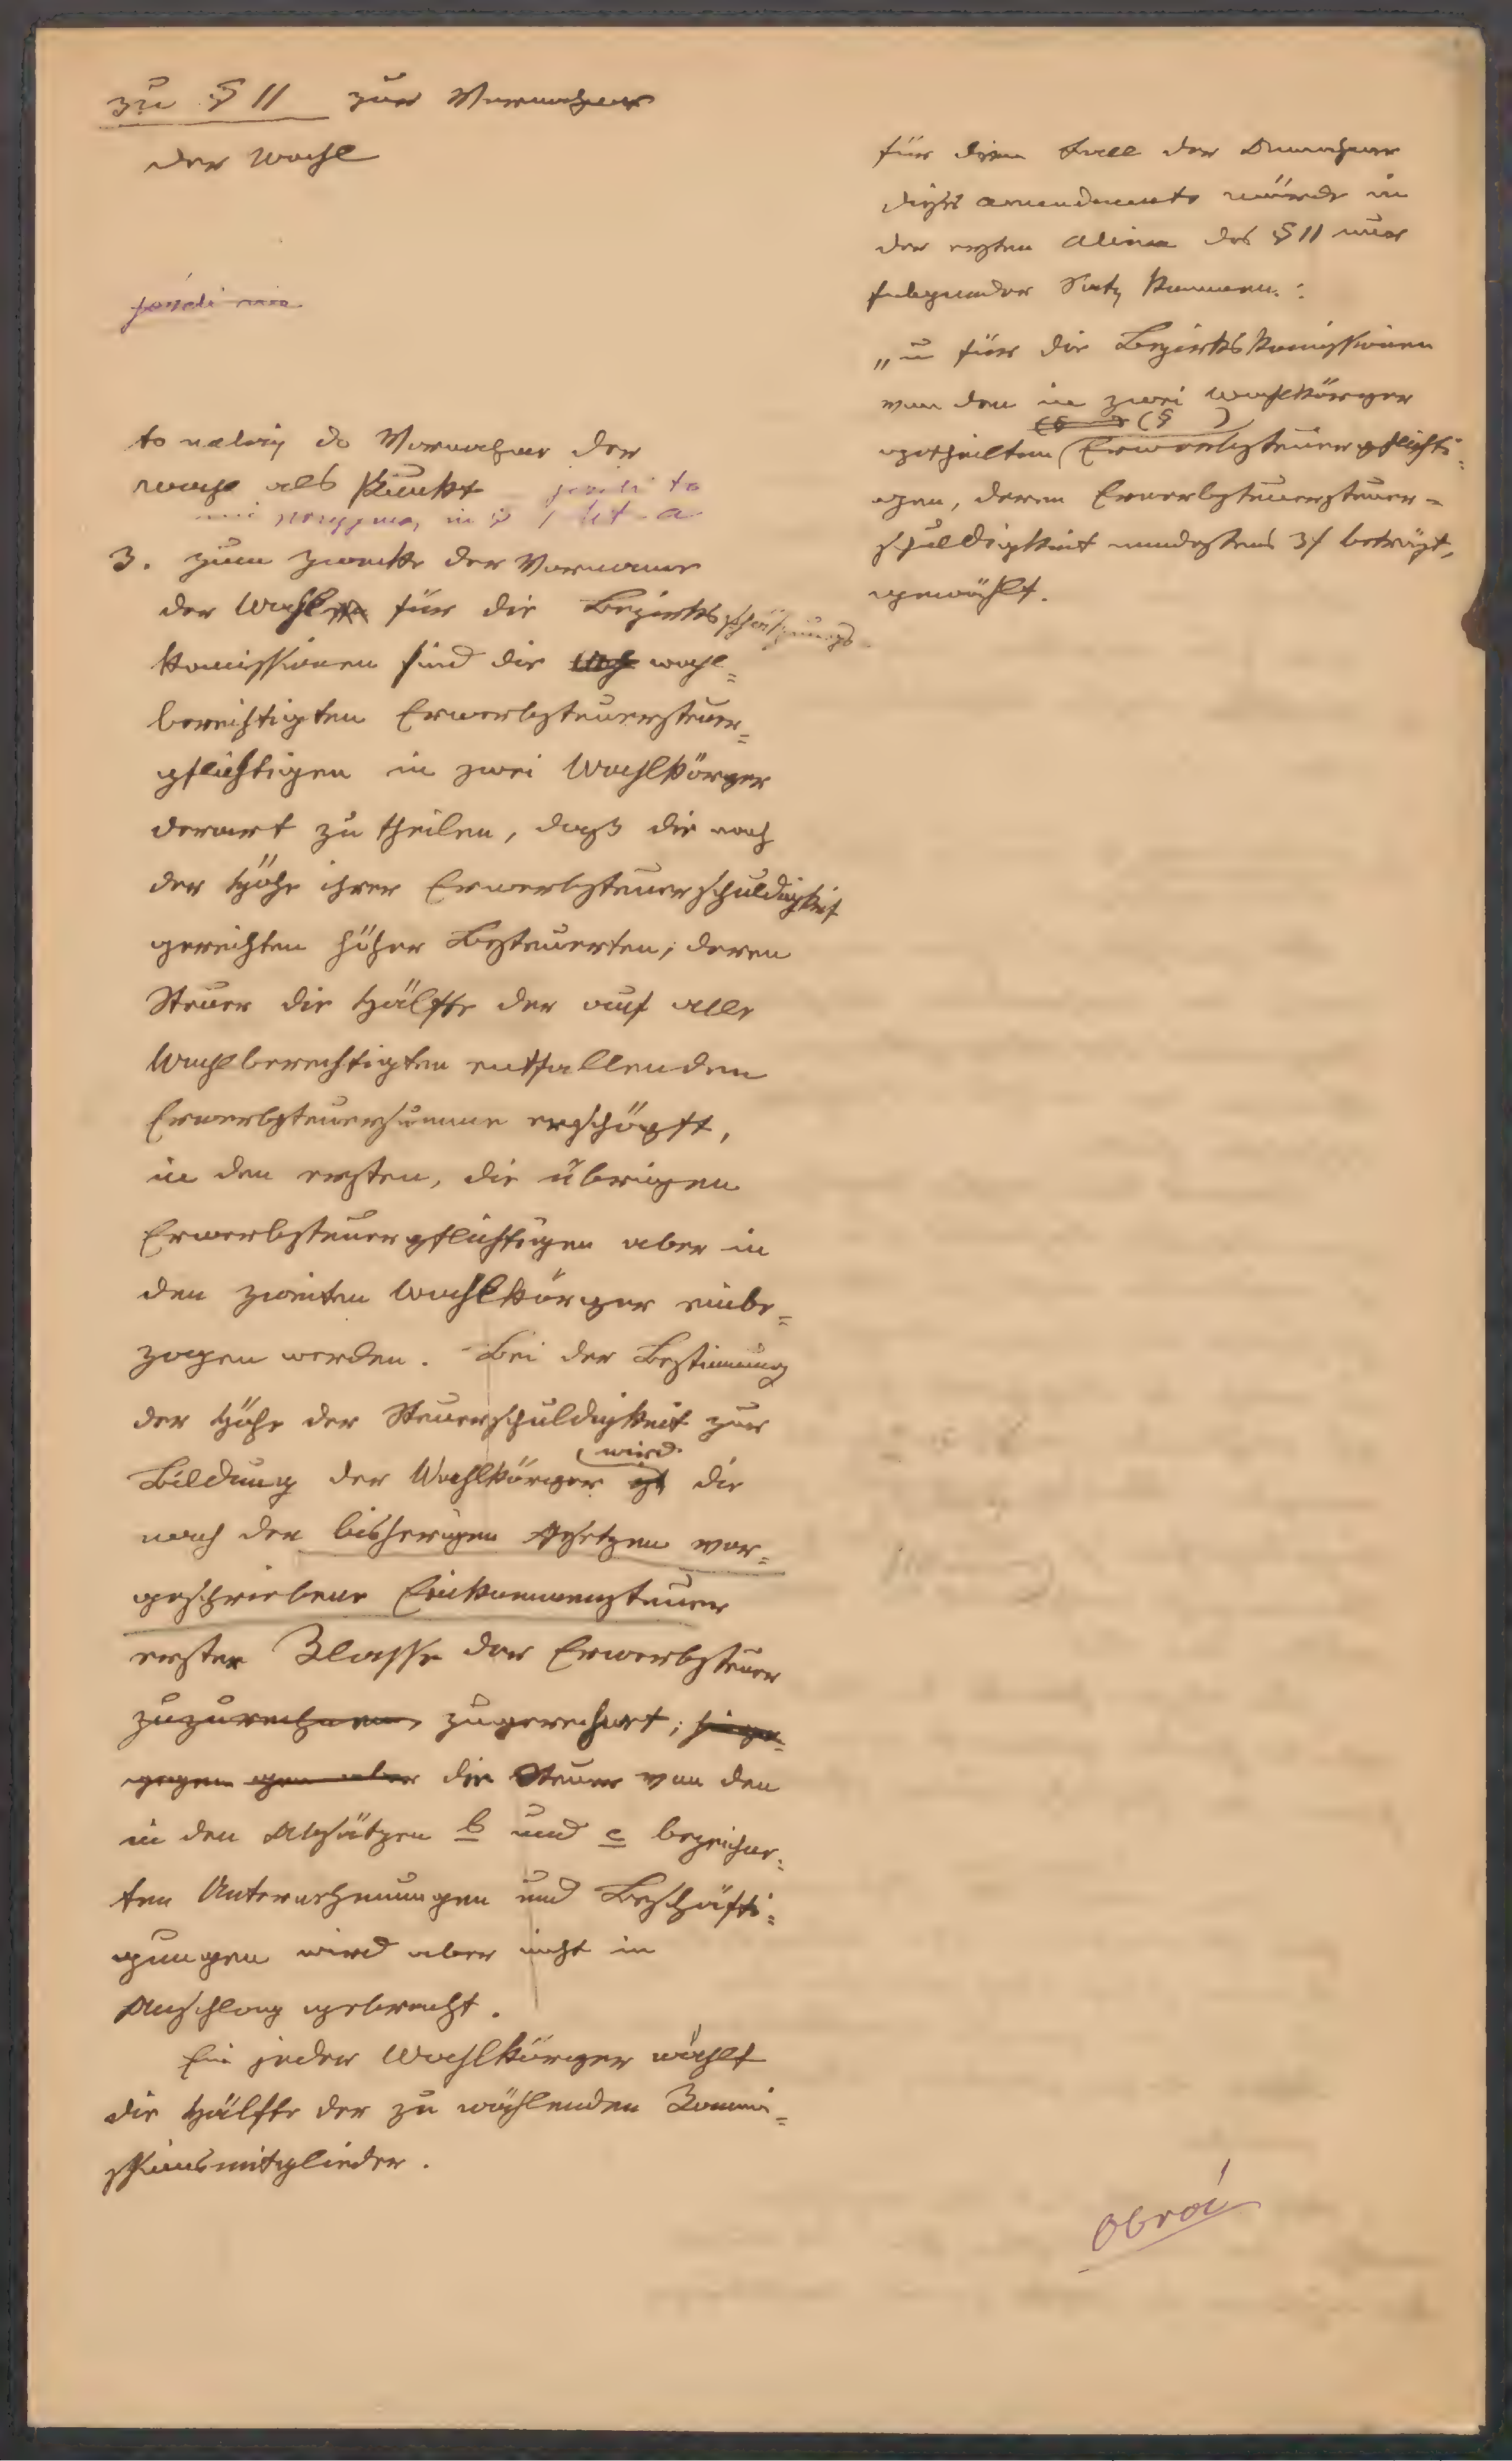 zu § 11 zur Vornahme
der Wahl
jeżeli nie
to należy do Vornahme der
Wahl als Punkt jeżeli to
nie przyjmą, in § lit a
3. zum Zwecke der Vorname
der Wahl für die Bezirksschätzungs-
komissionen sind die Wah wahl=
berechtigten Erwerbsteuersteuer=
pflichtigen in zwei Wahlkörper
derart zu theilen, daß die nach
der Höhe ihrer Erwerbsteuerschuldigkeit
gereihten höher Besteuerten, deren
Steuer die Hälfte der auf alle
Wahlberechtigten entfallenden
Erwerbsteuersumme erschöpft,
in den ersten, die übrigen
Erwerbsteuerpflichtigen aber in
den zweiten Wahlkörper einbe=
zogen werden. Bei der Bestimmung
der Höhe der Steuerschuldigkeit zur
wird
Bildung der Wahlkörper ist die
nach den bisherigen Gesetzen vor=
geschriebene Einkommensteuer
erster Klasse der Erwerbsteuer
zuzurechnen, zugerechnet; hinge=
gegen gen aber die Steuer von den
in den Absätzen b und c bezeichne=
ten Unternehmungen und Beschäfti=
gungen wird aber nicht in
Anschlag gebracht.
Ein jeder Wahlkörper wählt
die Hälfte der zu wählenden Kommi=
ssionsmitglieder.
für den Fall der Annahme
dieses Amendements würde in
der ersten Alinea des § 11 nur
folgender Satz kommen:
„u für die Bezirkskomissionen
von den in zwei Wahlkörper
(§ ) (§ )
getheilten Erwerbsteuerpflichti=
gen, deren Erwerbsteuersteuer=
schuldigkeit mindestens 3f beträgt,
gewählt.